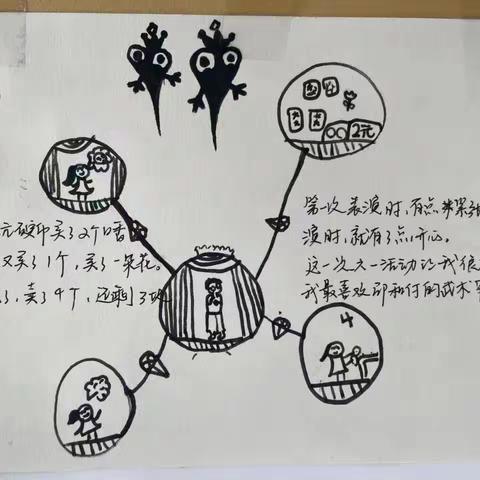 2元
元硬币买了2个口香
又买了1个,买了一朵花。
了,卖了4个,还剩了
第一次表演时,有点
演时,就有了点开心。
这一次六一活动让我很
我最喜欢 的武术
4